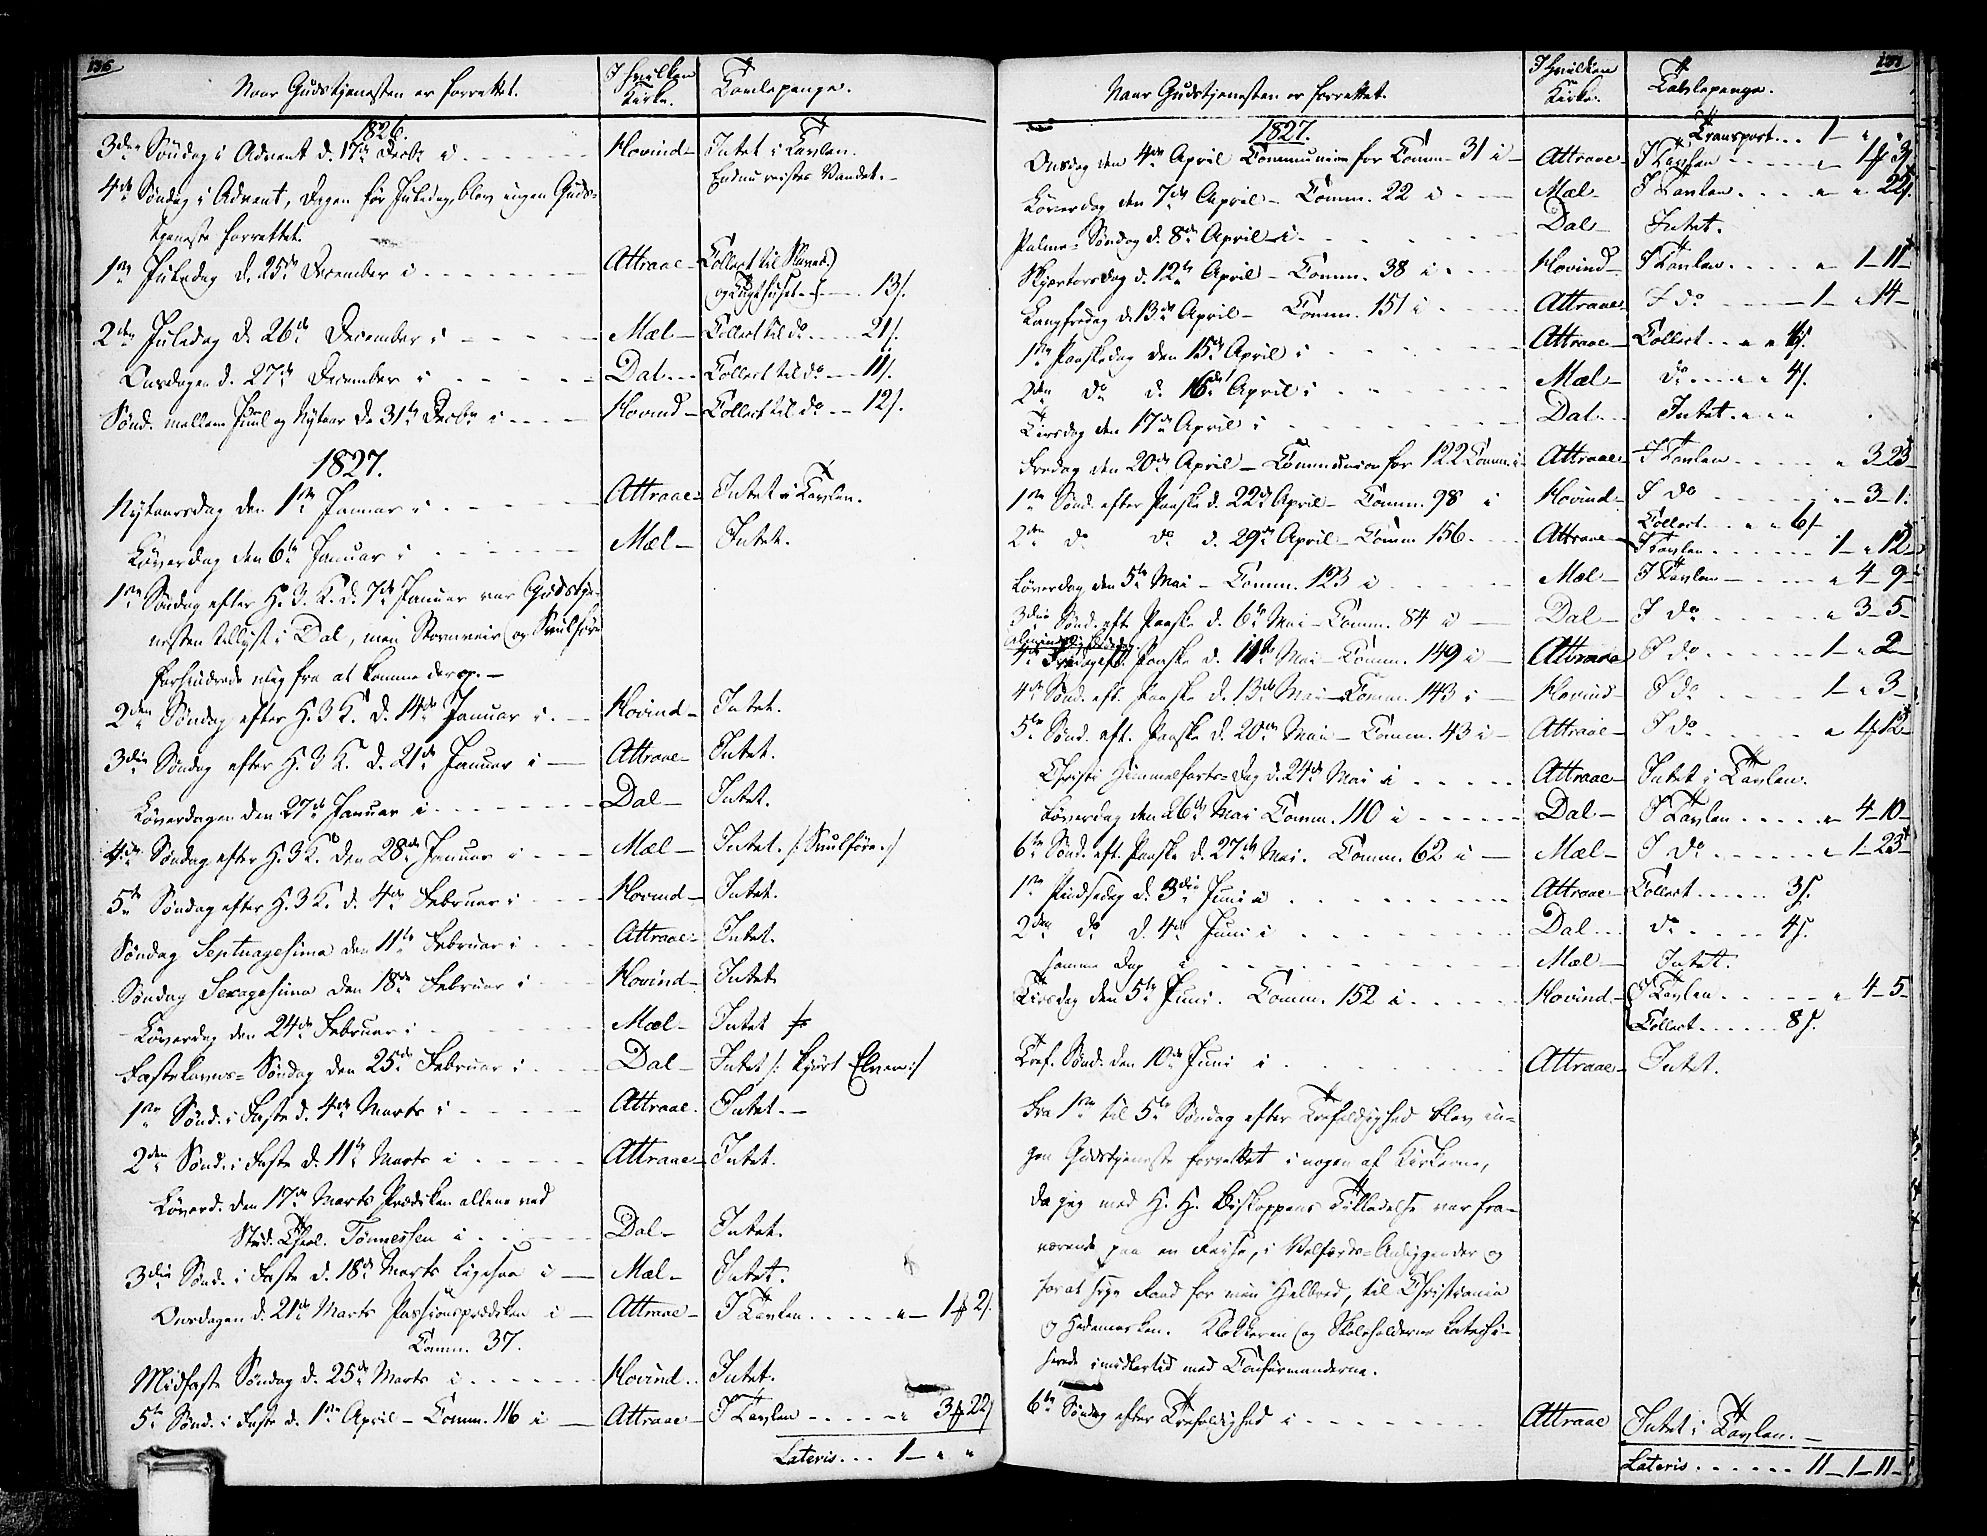 136
Naar Gudstjenesten er forrettet.
I hvilken Kirke.
Tavlepenge.
1826.
3die Søndag i Advent d. 17de Decbr i Hovind Intet i Tavlen.
4de Søndag i Advent, Dagen før Juledag, blev ingen Guds- Endnu Vandet.
tjeneste forrettet.
1ste Juledag d. 25de December i Attraae Collect til Slaverie
og Tugthuset 13s.
2den Juledag d. 26de December i Mæl Collect til do 21s.
Onsdagen d. 27de December i Dal Collect til do 11s.
Sønd. mellem Juul og Nytaar d. 31te Decbr i Hovind Collect til do 12s.
1827.
Nytaarsdag den 1ste Januar i Attraae Intet i Tavlen.
Løverdag den 6te Januar i Mæl Intet.
1ste Søndag efter H. 3 K. d. 7de Januar var Gudstje-
nesten tillyst i Dal, men Stormveir og Snuløføre
forhindrede mig fra at komme derop.
2den Søndag efter H. 3 K. d. 14de Januar i Hovind Intet.
3die Søndag efter H. 3 K. d. 21de Januar i Attraae Intet.
Løverdagen den 27de Januar i Dal Intet.
4de Søndag efter H. 3 K. den 28de Januar i Mæl Intet.
5te Søndag efter H. 3 K. d. 4de Februar i Hovind Intet.
Søndag Septuagesima den 11te Februar i Attraae Intet.
Søndag Sexagesima den 18de Februar i Hovind Intet
Løverdag den 24de Februar i Mæl Intet
Fastelavns-Søndag den 25de Februar i Dal Intet /: kjørt Elven :/
1ste Sønd. i Faste d. 4de Marts i Attraae Intet.
2den Sønd. i Faste d. 11te Marts i Attraae Intet.
Løverd. den 17de Marts Prædiken allene ved
Stud. Theol. Tønnessen i Dal Intet.
3die Sønd. i Faste d. 18de Marts ligesaa i Mæl Intet.
Onsdagen d. 21de Marts Passionsprædiken i Attraae I Tavlen " 1 2s.
Comm. 37.
Midfaste Søndag d. 25de Marts i Hovind Intet.
5te Sønd. i Faste d. 1ste April - Comm. 116 i Attraae I Tavlen " 3 22s
Lateris 1 " "
137
Naar Gudstjenesten er forrettet.
I hvilken Kirke.
Tavlepenge.
1827. Transport 1 " "
Onsdag den 4de April Communion for Comm. 31 i Attraae I Tavlen " 1 3
Løverdag den 7de April - Comm. 22 i Mæl I Tavlen " " 22s.
Palme-Søndag d. 8de April i Dal Intet.
Skjærtorsdag d. 12te April - Comm. 38 i Hovind I Tavlen " 1 - 11
Langfredag d. 13de April - Comm. 151 i Attraae I do 1 " 14
1ste Paaskedag den 15de April i Attraae Collect
2den do d. 16de April i Mæl do 4s.
Tirsdag den 17de April i Dal Intet
Fredag den 20de April - Communion for 122 Comm. i Attraae I Tavlen " 3 23
1ste Sønd. efter Paaske d. 22de April - Comm. 98 i Hovind I do " 3 - 1
Collect 6s
2den do do d. 29de April - Comm 156 Attraae I Tavlen 1 " 12
Løverdag den 5te Mai - Comm. 123 i Mæl I Tavlen " 4 9
3die Sønd. eft. Paaske d. 6te Mai - Comm. 84 i Dal I do " 3 - 5
almindelig Bededag
4de Fredag eft. Paaske d. 11te Mai - Comm. 149 i Attraae I do 1 " 2
4de Sønd. eft. Paaske d. 13de Mai - Comm. 143 i Hovind I do 1 " 3
5te Sønd. eft. Paaske d. 20de Mai - Comm. 43 i Attraae I do " 4 12
Christi Himmelfarts-Dag d. 24de Mai i Attraae Intet i Tavlen.
Løverdag den 26de Mai Comm. 110 i Dal I Tavlen " 4 - 10
6te Sønd. eft. Paaske d. 27de Mai. Comm. 62 i Mæl I do " 1 - 23
1ste Pindsedag d. 3die Juni i Attraae Collect 3s.
2den do d. 4de Juni i Dal do 4s.
samme Dag i Mæl Intet.
Tirsdag den 5te Juni. Comm. 152 i Hovind I Tavlen " 4 - 5
Collect 8s.
Tref. Sønd. den 10de Juni i Attraae Intet.
Fra 1ste til 5te Søndag efter Trefoldighed blev in-
gen Gudstjeneste forrettet i nogen af Kirkerne,
da jeg med H. H. Biskoppens Tilladelse var fra-
værende paa en Reise, i Velfærds-Anliggender og
for at søge Raad for min Helbred, til Christiania
og Hedemarken. Klokkeren og Skoleholderne catechi-
serede imidlertid med Confirmanderne.
6te Søndag efter Trefoldighed i Attraae Intet i Tavlen.
Lateris 11 - 1 - 11